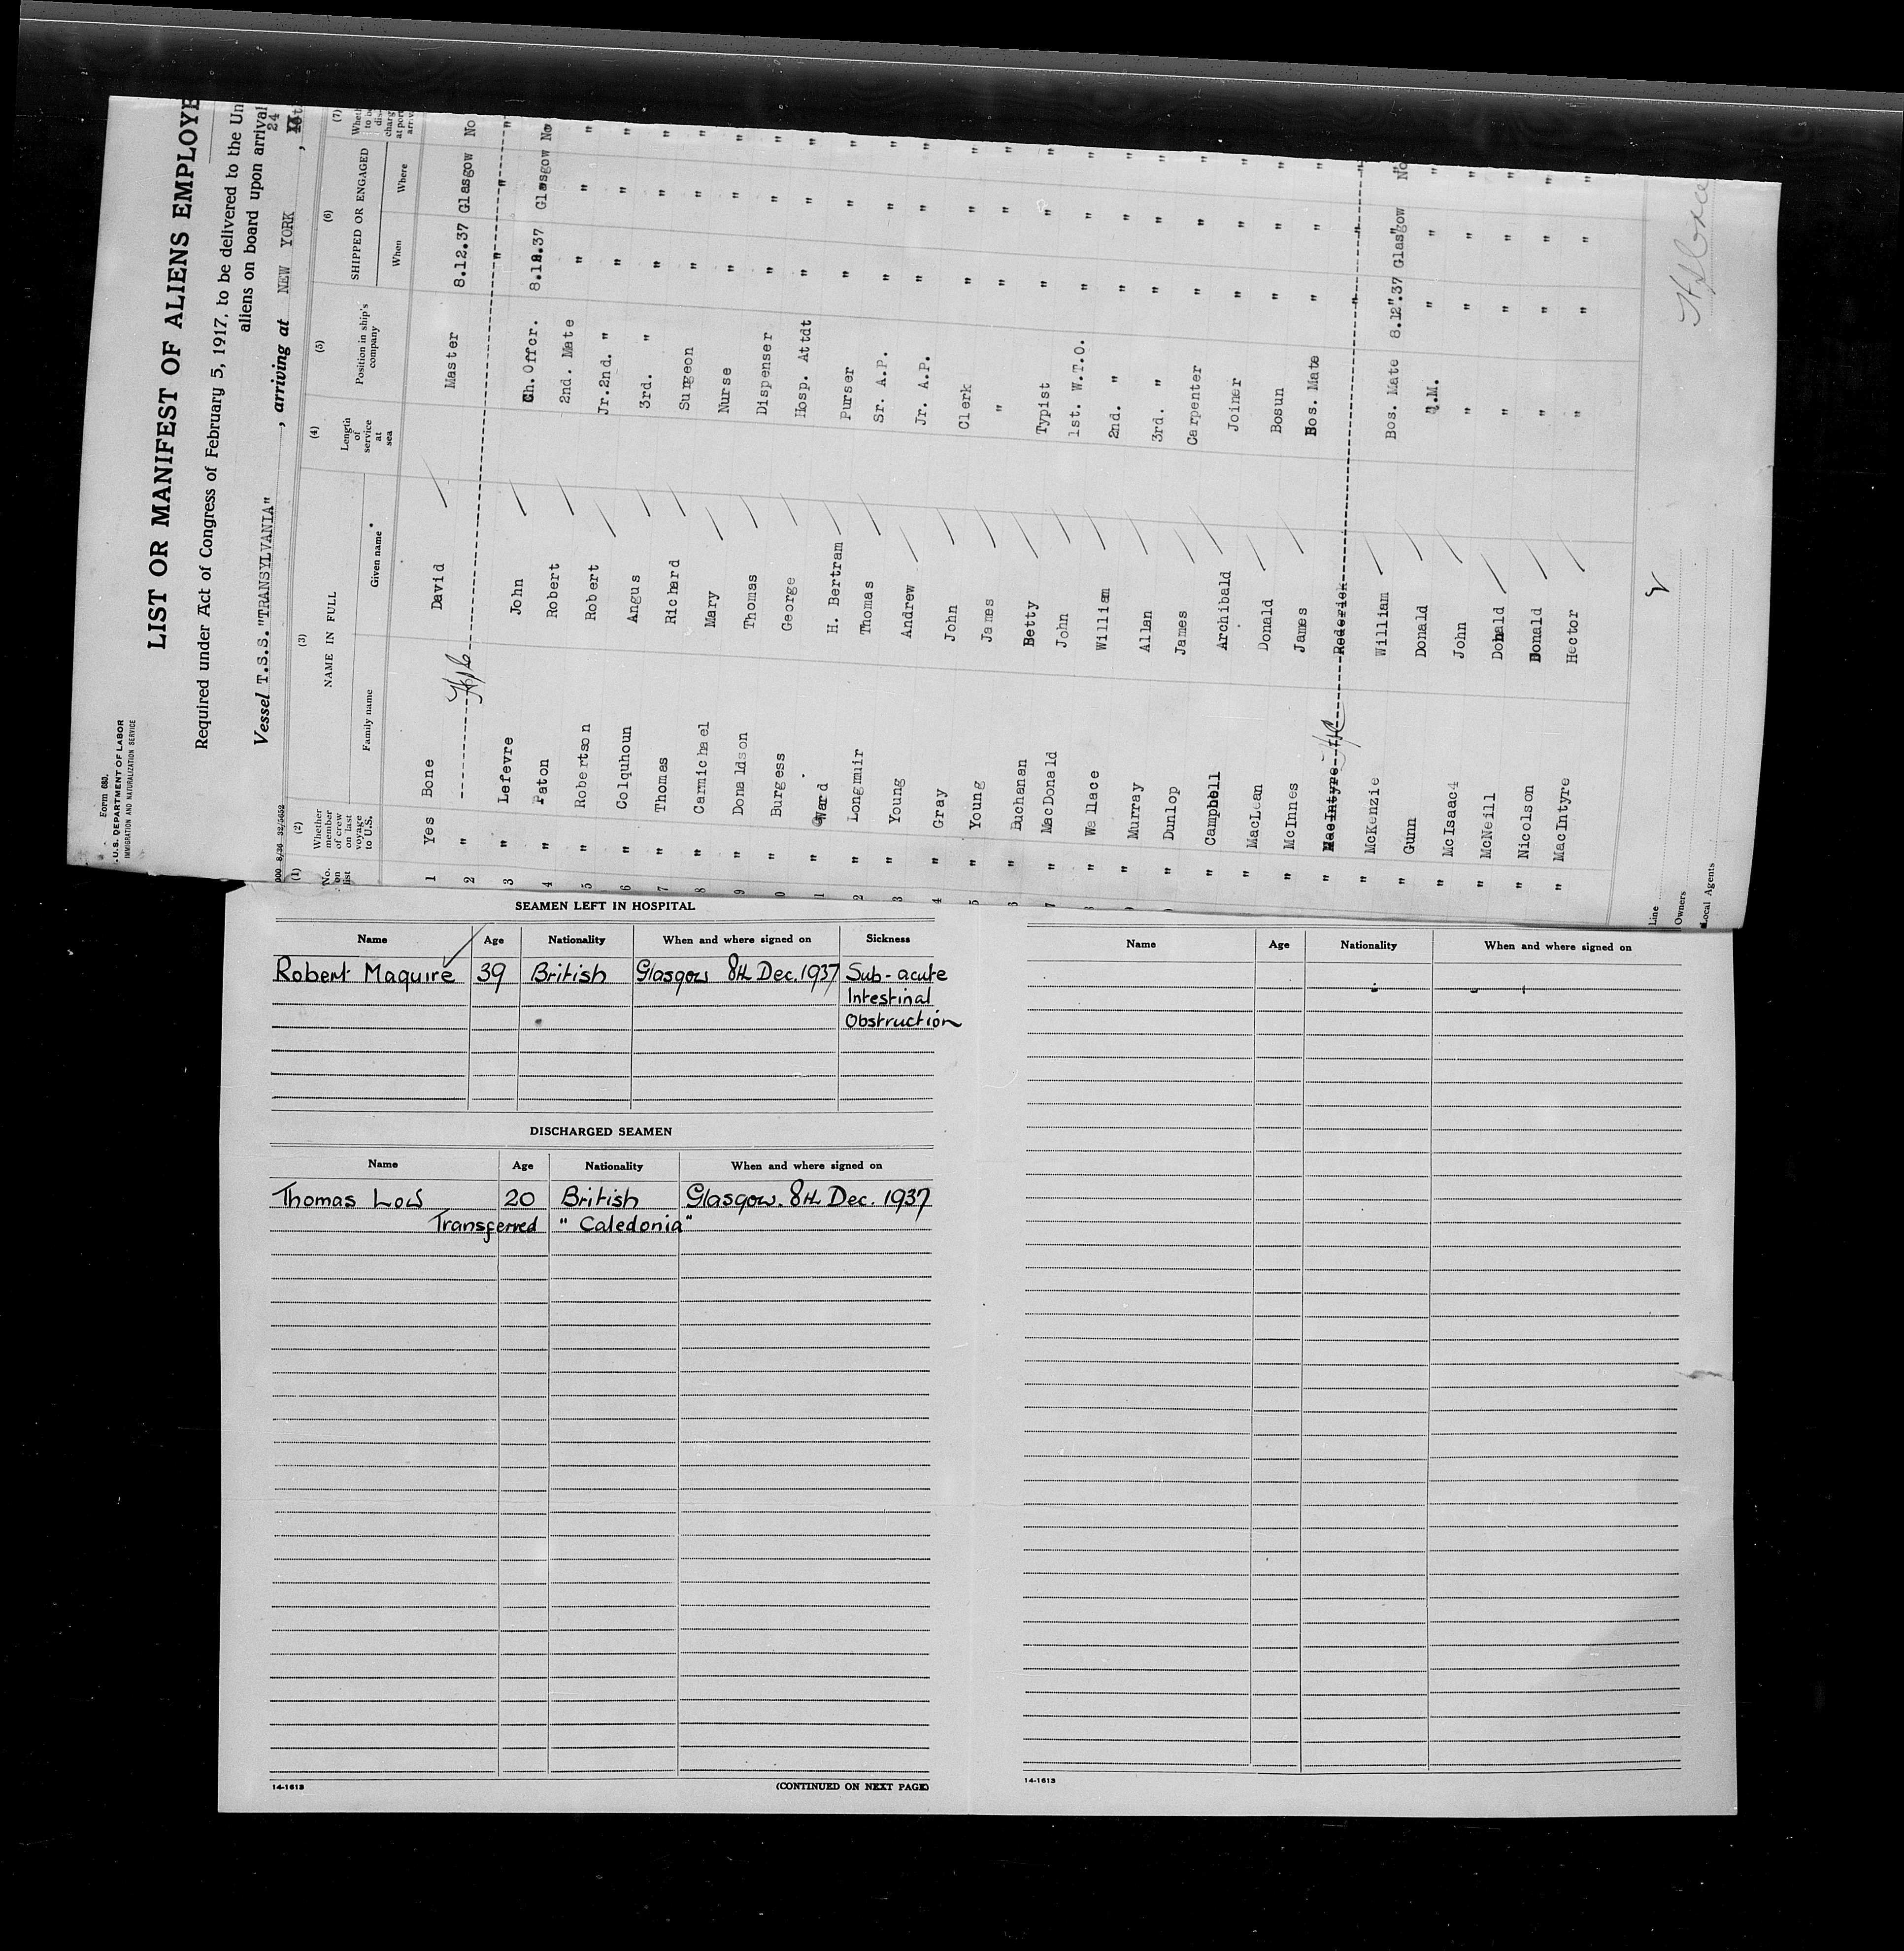 Form 680.
U.S. DEPARTMENT OF LABOR
IMMIGRATION AND NATURALIZATION SERVICE
LIST OR MANIFEST OF ALIENS EMPLOYE
Required under Act of Congress of February 5, 1917, to be delivered to the Un
aliens on board upon arrival
24
Vessel T.S.S. "TRANSYLVANIA", arriving at NEW YORK,
(1) (2) (3) (4) (5) (6) (7)
No. on list Whether member of crew on last voyage to U.S. NAME IN FULL Length of service at sea Position in ship's company SHIPPED OR ENGAGED
Family name Given name* When Where
1 Yes Bone David Master 8.12.37 Glasgow No
2 " " " "
3 " Lefevre John Ch. Offcr. 8.12.37 Glasgow No
4 " Paton Robert 2nd. Mate " " "
5 " Robertson Robert Jr. 2nd. " " " "
6 " Colquhoun Angus 3rd. " " " "
7 " Thomas Richard Surgeon " " "
8 " Carmichael Mary Nurse " " "
9 " Donaldson Thomas Dispenser " " "
0 " Burgess George Hosp. Attdt " " "
1 " Ward. H. Bertram Purser " " "
2 " Longmuir Thomas Sr. A.P. " " "
3 " Young Andrew Jr. A.P. " " "
4 " Gray John Clerk " " "
5 " Young James " " " "
6 " Buchanan Betty Typist " " "
7 " MacDonald John 1st. W.T.O. " " "
8 " Wallace William 2nd. " " " "
9 " Murray Allan 3rd. " " " "
" Dunlop James Carpenter " " "
" Campbell Archibald Joiner " " "
" MacLean Donald Bosun " " "
" McInnes James Bos. Mate " " "
" MacIntyre Roderick " " "
" McKenzie William Bos. Mate 8.12.37 Glasgow No
" Gunn Donald Q.M. " " "
" McIsaac John " " " "
" McNeill Donald " " " "
" Nicolson Donald " " " "
" MacIntyre Hector " " " "
Line
Owners
Local Agents
SEAMEN LEFT IN HOSPITAL
Name Age Nationality When and where signed on Sickness
Robert Maquire 39 British Glasgow 8th Dec. 1937 Sub-acute
Intestinal
Obstruction
DISCHARGED SEAMEN
Name Age Nationality When and where signed on
Thomas Low 20 British Glasgow. 8th Dec. 1937
Transferred "Caledonia"
14-1613
(CONTINUED ON NEXT PAGE)
Name Age Nationality When and where signed on
14-1613